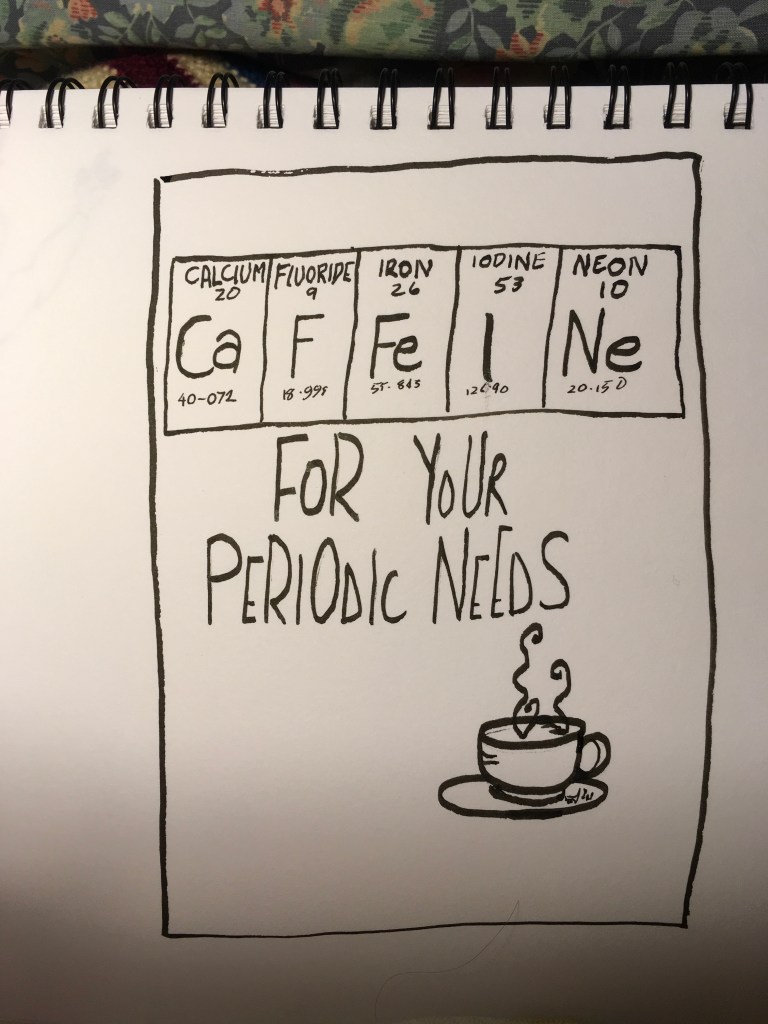 CALCIUM FLUORIDE IRON IODINE NEON
20 9 26 53 10
Ca F Fe I Ne
40-072 18.998 55.845 126.90 20.150
FOR YOUR
PERIODIC NEEDS